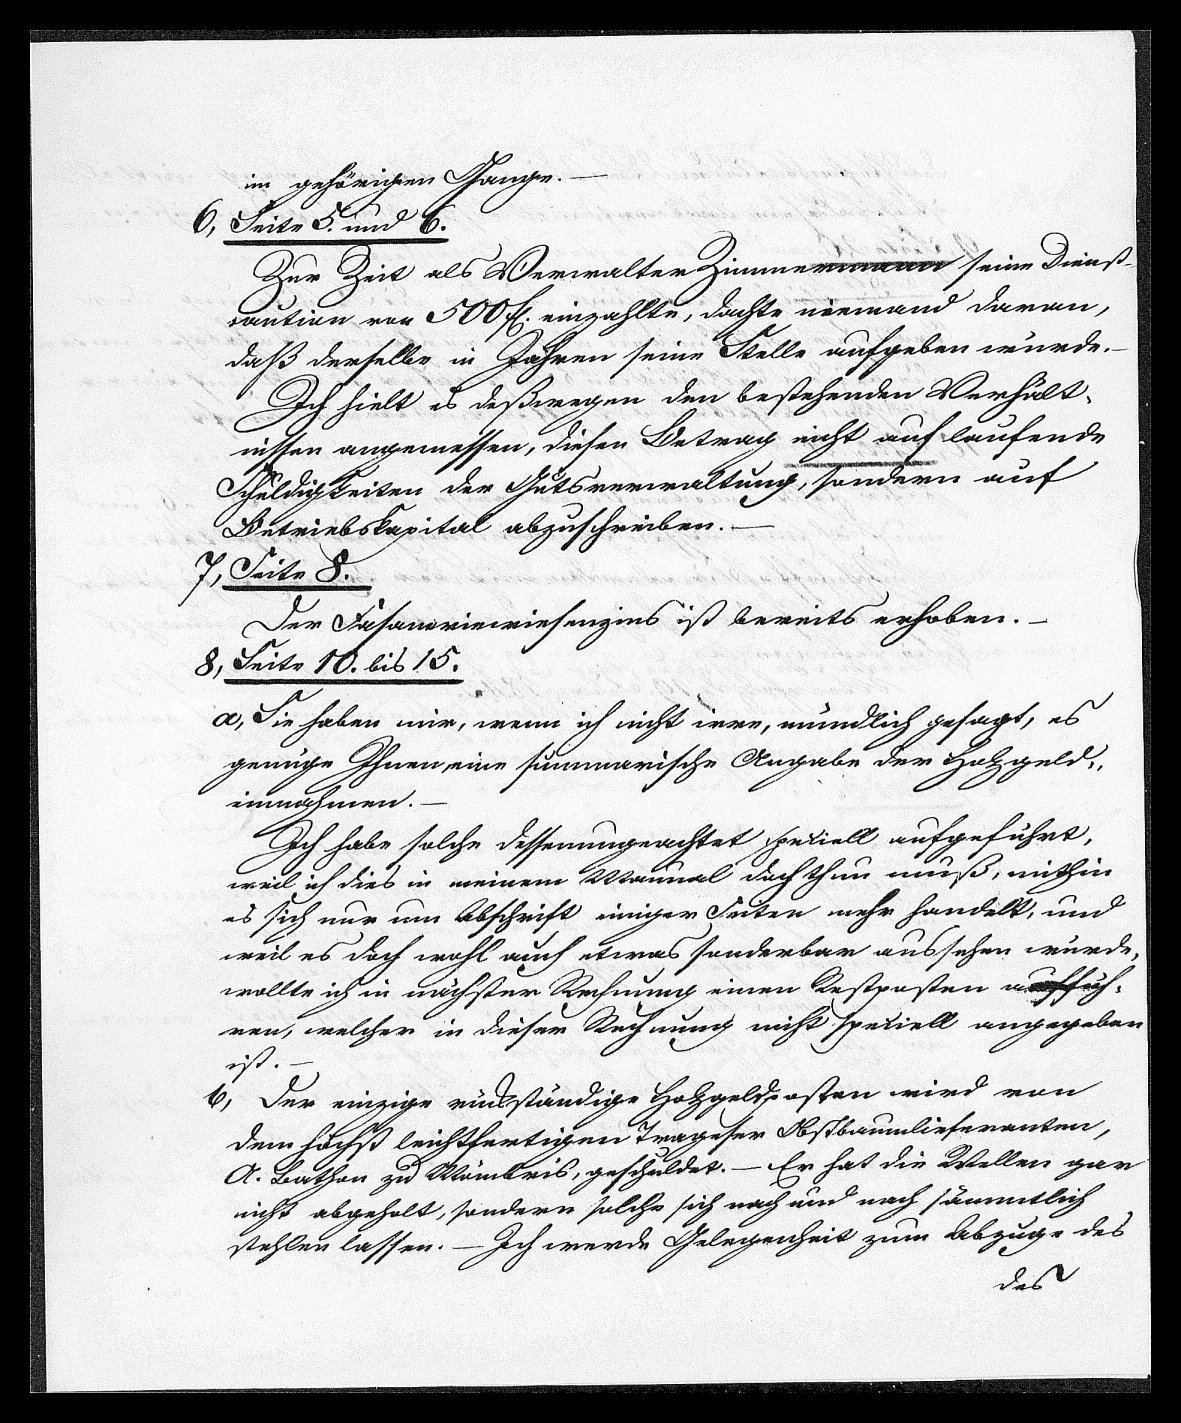 im gehörigen Gange. —
6, Seite 5. und 6.
Zur Zeit als Verwalter Zimmermann seine Dienst-
caution von 500 fl. einzahlte, dachte niemand daran,
daß derselbe in Jahren seine Stelle aufgeben würde. —
Ich hielt es deßwegen den bestehenden Verhält-
nissen angemessen, diesen Betrag nicht auf laufende
Schuldigkeiten der Gutsverwaltung, sondern auf
Betriebskapital abzuschreiben. —
7, Seite 8.
Der Fasaneriewiesenzins ist bereits erhoben. —
8, Seite 10. bis 15.
a, Sie haben mir, wenn ich nicht irre, mündlich gesagt, es
genüge Ihnen, eine summarische Angabe der Holzgeld-
einnahmen. —
Ich habe solche dessenungeachtet speciell aufgeführt,
weil ich dies in meinem Manual doch thun muß, mithin
es sich nur um Abschrift einiger Seiten mehr handelt, und
weil es doch wohl auch etwas sonderbar aussehen würde,
wollte ich in nächster Rechnung einen Restposten auffüh-
ren, welcher in dieser Rechnung nicht speciell angegeben
ist. —
b, Der einzige rückständige Holzgeldposten wird von
dem höchst leichtfertigen Trageser Obstbaumlieferanten,
A. Bathon zu Mömbris, geschuldet. — Er hat die Wellen gar
nicht abgeholt, sondern solche sich nach und nach sämmtlich
stehlen lassen. — Ich werde Gelegenheit zum Abzuge des
des